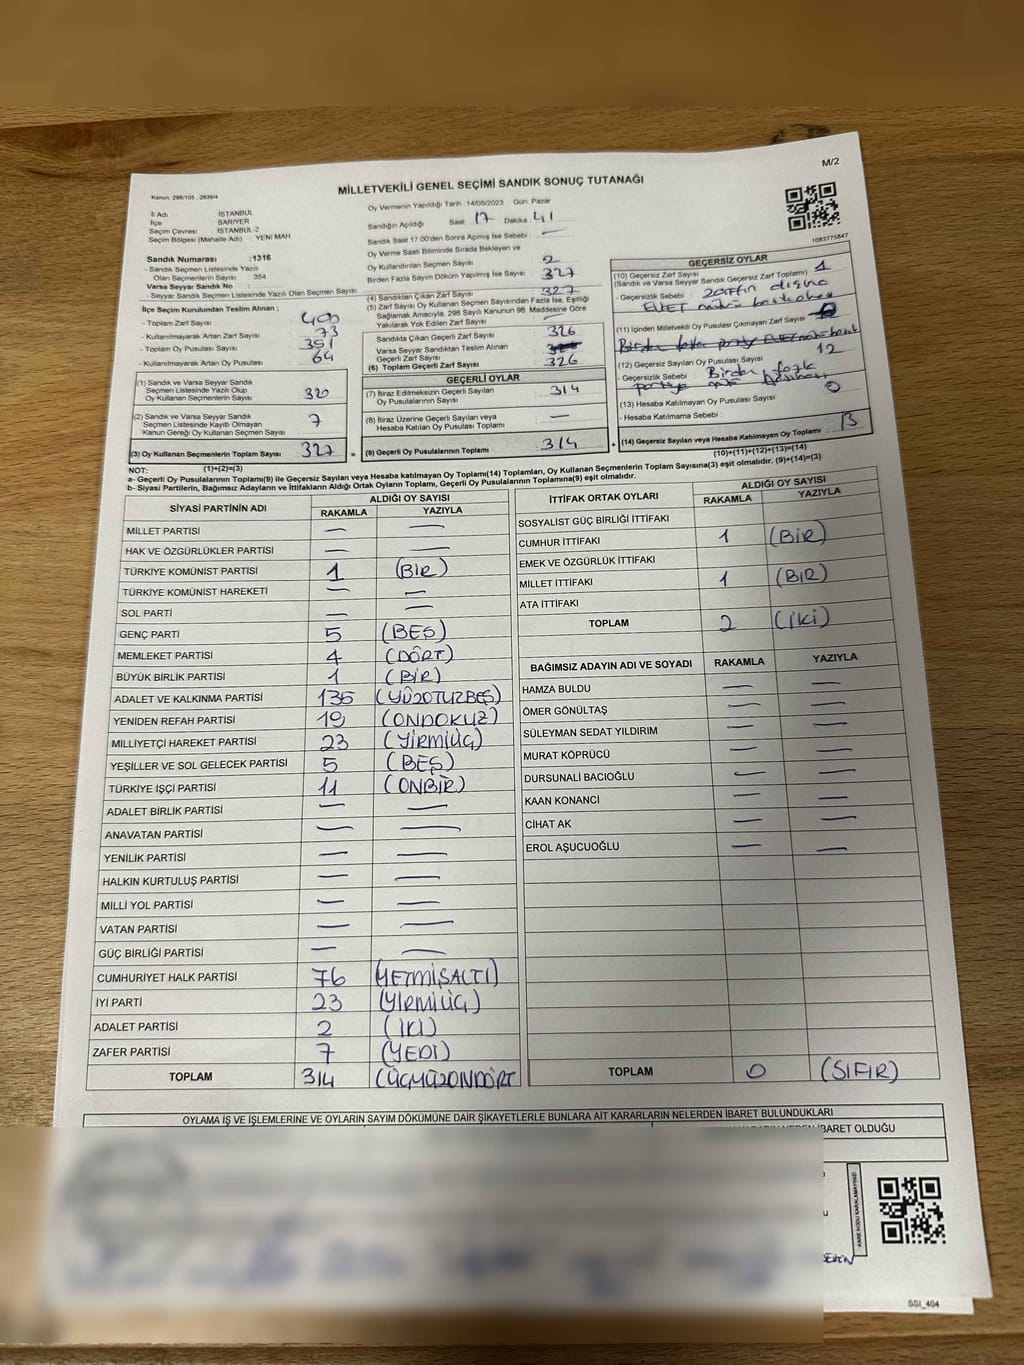 M/2
MİLLETVEKİLİ GENEL SEÇİMİ SANDIK SONUÇ TUTANAĞI
Kanun: 298/105 , 2839/4
İl Adı İSTANBUL
İlçe SARIYER
Seçim Çevresi İSTANBUL-2
Seçim Bölgesi (Mahalle Adı) : YENİ MAH.
Oy Vermenin Yapıldığı Tarih : 14/05/2023 Gün: Pazar
Sandığın Açıldığı Saat 17 Dakika 41
Sandık Saat 17.00'den Sonra Açılmış İse Sebebi : —
Oy Verme Saati Bitiminde Sırada Bekleyen ve
Oy Kullandırılan Seçmen Sayısı 2
Birden Fazla Sayım Döküm Yapılmış İse Sayısı 327
1083775847
Sandık Numarası : 1316
- Sandık Seçmen Listesinde Yazılı
Olan Seçmenlerin Sayısı : 354
Varsa Seyyar Sandık No :
- Seyyar Sandık Seçmen Listesinde Yazılı Olan Seçmen Sayısı
İlçe Seçim Kurulundan Teslim Alınan ;
- Toplam Zarf Sayısı 400
- Kullanılmayarak Artan Zarf Sayısı 73
- Toplam Oy Pusulası Sayısı 391
- Kullanılmayarak Artan Oy Pusulası 64
(1) Sandık ve Varsa Seyyar Sandık
Seçmen Listesinde Yazılı Olup
Oy Kullanan Seçmenlerin Sayısı 320
(2) Sandık ve Varsa Seyyar Sandık
Seçmen Listesinde Kayıtlı Olmayan
Kanun Gereği Oy Kullanan Seçmen Sayısı 7
(3) Oy Kullanan Seçmenlerin Toplam Sayısı 327 =
(1)+(2)=(3)
(4) Sandıktan Çıkan Zarf Sayısı 327
(5) Zarf Sayısı Oy Kullanan Seçmen Sayısından Fazla İse, Eşitliği
Sağlamak Amacıyla, 298 Sayılı Kanunun 98. Maddesine Göre
Yakılarak Yok Edilen Zarf Sayısı —
Sandıkta Çıkan Geçerli Zarf Sayısı 326
Varsa Seyyar Sandıktan Teslim Alınan
Geçerli Zarf Sayısı
(6) Toplam Geçerli Zarf Sayısı 326
GEÇERLİ OYLAR
(7) İtiraz Edilmeksizin Geçerli Sayılan
Oy Pusulalarının Sayısı 314
(8) İtiraz Üzerine Geçerli Sayılan veya
Hesaba Katılan Oy Pusulası Toplamı —
(9) Geçerli Oy Pusulalarının Toplamı 314 +
GEÇERSİZ OYLAR
(10) Geçersiz Zarf Sayısı
(Sandık ve Varsa Seyyar Sandık Geçersiz Zarf Toplamı) 1
- Geçersizlik Sebebi : zarfın dışına
EVET mührü
(11) İçinden Milletvekili Oy Pusulası Çıkmayan Zarf Sayısı
(12) Geçersiz Sayılan Oy Pusulası Sayısı 12
- Geçersizlik Sebebi : Birden fazla
partiye
(13) Hesaba Katılmayan Oy Pusulası Sayısı 0
- Hesaba Katılmama Sebebi :
(14) Geçersiz Sayılan veya Hesaba Katılmayan Oy Toplamı 13
(10)+(11)+(12)+(13)=(14)
NOT:
a- Geçerli Oy Pusulalarının Toplamı(9) ile Geçersiz Sayılan veya Hesaba katılmayan Oy Toplamı(14) Toplamları, Oy Kullanan Seçmenlerin Toplam Sayısına(3) eşit olmalıdır. (9)+(14)=(3)
b- Siyasi Partilerin, Bağımsız Adayların ve İttifakların Aldığı Ortak Oyların Toplamı, Geçerli Oy Pusulalarının Toplamına(9) eşit olmalıdır.
SİYASİ PARTİNİN ADI ALDIĞI OY SAYISI
RAKAMLA YAZIYLA
MİLLET PARTİSİ — —
HAK VE ÖZGÜRLÜKLER PARTİSİ — —
TÜRKİYE KOMÜNİST PARTİSİ 1 (BİR)
TÜRKİYE KOMÜNİST HAREKETİ — —
SOL PARTİ — —
GENÇ PARTİ 5 (BEŞ)
MEMLEKET PARTİSİ 4 (DÖRT)
BÜYÜK BİRLİK PARTİSİ 1 (BİR)
ADALET VE KALKINMA PARTİSİ 135 (YÜZOTUZBEŞ)
YENİDEN REFAH PARTİSİ 19 (ONDOKUZ)
MİLLİYETÇİ HAREKET PARTİSİ 23 (YİRMİÜÇ)
YEŞİLLER VE SOL GELECEK PARTİSİ 5 (BEŞ)
TÜRKİYE İŞÇİ PARTİSİ 11 (ONBİR)
ADALET BİRLİK PARTİSİ — —
ANAVATAN PARTİSİ — —
YENİLİK PARTİSİ — —
HALKIN KURTULUŞ PARTİSİ — —
MİLLİ YOL PARTİSİ — —
VATAN PARTİSİ — —
GÜÇ BİRLİĞİ PARTİSİ — —
CUMHURİYET HALK PARTİSİ 76 (YETMİŞALTI)
İYİ PARTİ 23 (YİRMİÜÇ)
ADALET PARTİSİ 2 (İKİ)
ZAFER PARTİSİ 7 (YEDİ)
TOPLAM 314 (ÜÇYÜZONDÖRT
İTTİFAK ORTAK OYLARI ALDIĞI OY SAYISI
RAKAMLA YAZIYLA
SOSYALİST GÜÇ BİRLİĞİ İTTİFAKI
CUMHUR İTTİFAKI 1 (BİR)
EMEK VE ÖZGÜRLÜK İTTİFAKI
MİLLET İTTİFAKI 1 (BİR)
ATA İTTİFAKI
TOPLAM 2 (İKİ)
BAĞIMSIZ ADAYIN ADI VE SOYADI RAKAMLA YAZIYLA
HAMZA BULDU — —
ÖMER GÖNÜLTAŞ — —
SÜLEYMAN SEDAT YILDIRIM — —
MURAT KÖPRÜCÜ — —
DURSUNALİ BACIOĞLU — —
KAAN KONANCİ — —
CİHAT AK — —
EROL AŞUCUOĞLU — —
TOPLAM 0 (SIFIR)
OYLAMA İŞ VE İŞLEMLERİNE VE OYLARIN SAYIM DÖKÜMÜNE DAİR ŞİKAYETLERLE BUNLARA AİT KARARLARIN NELERDEN İBARET BULUNDUKLARI
İBARET OLDUĞU
KARE KODU KARALAMAYINIZ!
SSİ_404